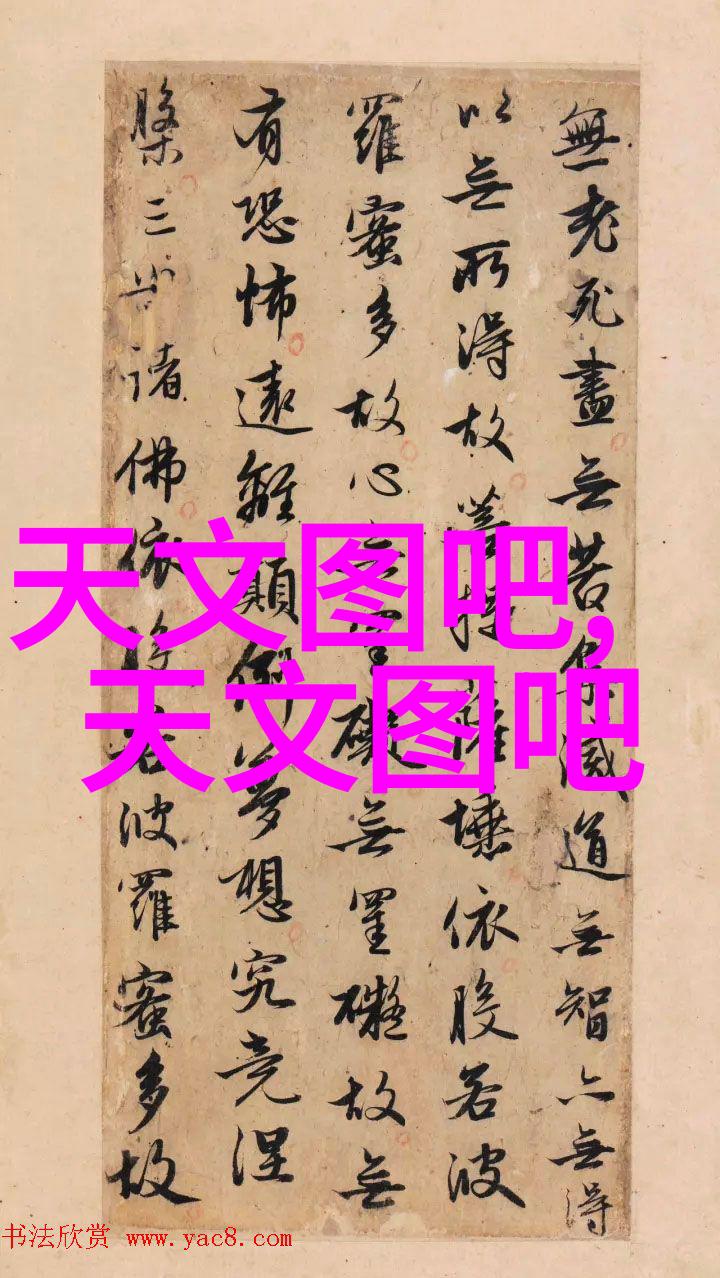 無老死盡无苦集滅道无智亦无得
以无所得故菩提薩埵依般若波
羅蜜多故心无罣礙无罣礙故无
有恐怖遠離顛倒夢想究竟涅
槃三世諸佛依般若波羅蜜多故
天文图吧,
天文图吧
书法欣赏 www.yac8.com